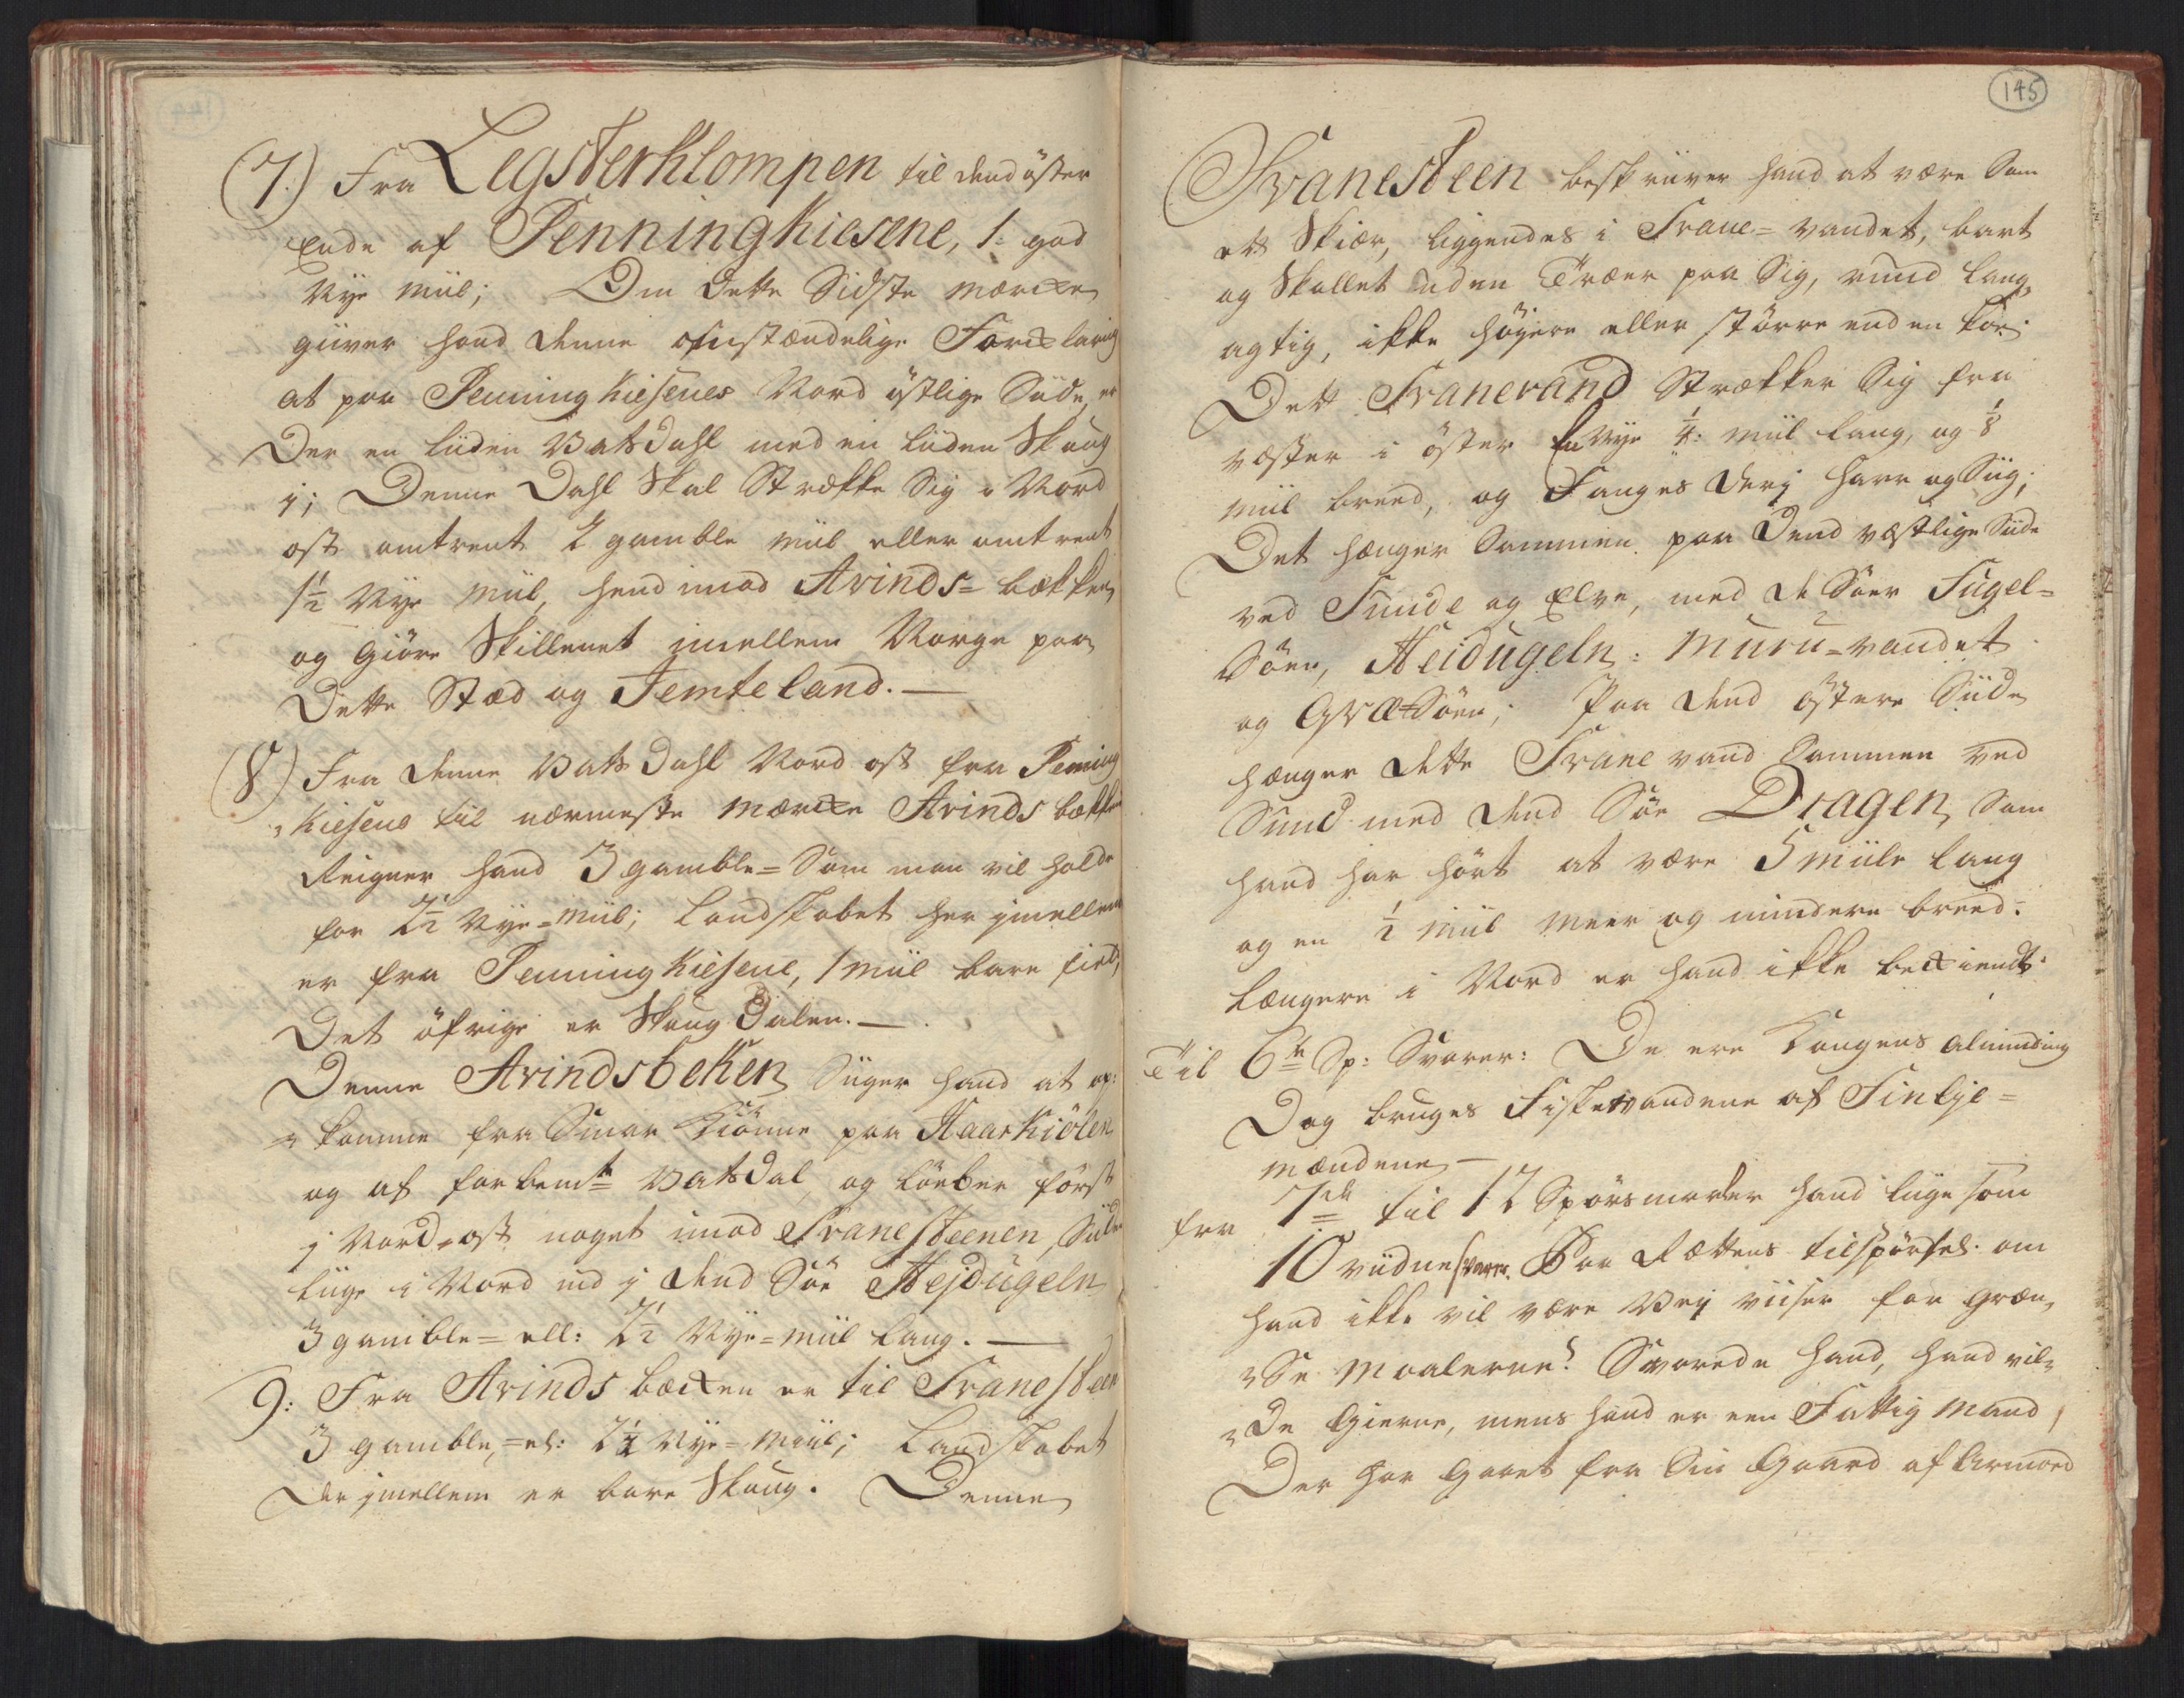 (7.) Fra Legsterklompen til dend öster
Ende af Penningkiesene, 1. god
Nye Miil; Om dette Sidste Mærcke
giiver hand denne omstændelige Forcklaring
at paa Penningkiesenes Nord östlige Siide, er
Der en liiden Vatsdahl med en liiden Skoug
j; Denne Dahl Skal Strække Sig i Nord
ost omtrent 2 gamble Miil eller omtrent
1½ Nye Miil, hend imod Arinds=bækken
og giöre Skillenet imellem Norge paa
Dette Stæd og Jemteland. —
(8) Fra denne Vatsdahl Nord ost fra Penning
kiesens til nærmeste Mærcke Arinds bækken
Reigner hand 3 gamble= Som man vil holde
for 2½ Nye=Miil; Landskabet her jmellem
er fra Penningkiesene, 1 Miil bare field,
Det öfrige er Skoug Dalen. —
Denne Arindsbeken Siiger hand at op:
= komme fra Smaa Kiönne paa Haarkiölen
og af forbemte Vatsdal, og löeber först
j Nord-ost noget imod Svanesteenen, Siiden
liige i Nord ind j dend Söe Hejdügeln
3 gamble= ell: 2½ Nye=Miil lang. —
9: Fra Arinds bæcken er til Svanesteen
3 gamble,=el: 2¼ Nye=Miil; Landskabet
der jmellem er bare Skoug. Denne
145
Svanesteen beskriiver hand at være Som
ett Skiær, liggendes i Svane=vandet, bart
og Skallet uden Træer paa Sig, rund lang,
agtig, ikke höyere eller större end en Koe.
Dett Svanevand Strækker Sig fra
væster i öster En Nye ¼: Miil lang, og ⅛
Miil breed, og Fanges derj Harr og Siig;
Det hænger Sammen paa Dend væstlige Siide
ved Sunde og Elve, med de Söer Fugel=
Söen, Heidugeln: Muru=vandet
og Græ=Söen; Paa dend östere Siide
hænger dette Svane vand Sammen ved
Sund med dend Söe Dragen, Som
hand har hört at være 5 Miile lang
og en ½ Miil meer og mindere breed:
længere i Nord er hand ikke beckiendt.
Til 6te Sp: Svarer: De ere Kongens Alminding
Dog bruges Fiskevandene af Finlje=
mændene —
fra 7de til 12 Spörsmaaler hand liige som
10 viidne svarer. Paa Rættens tilspörsel. om
hand ikke vil være Vej viiser for græn,
=Se Maalerne? Svarede hand, hand vil=
=De gierne, mens hand er een Fattig Mand,
Der har gaaet fra Sin Gaard af Armoed